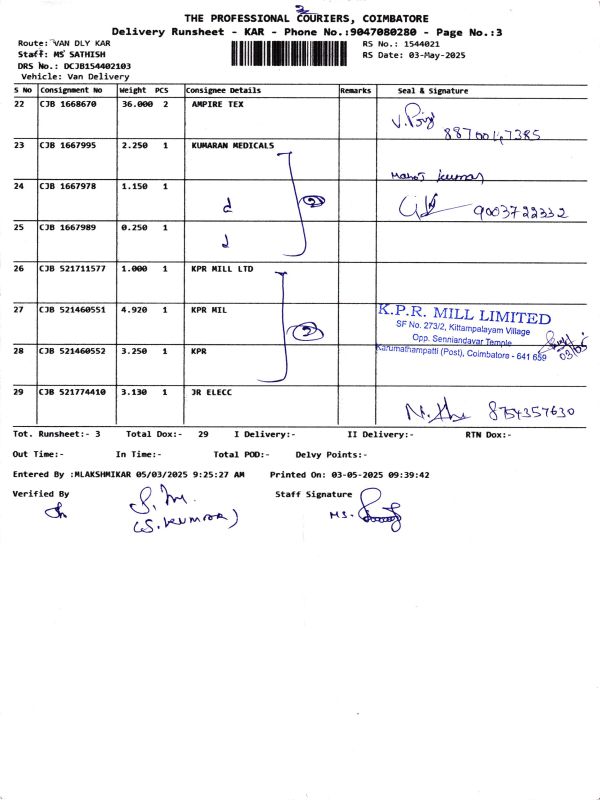 THE PROFESSIONAL COURIERS, COIMBATORE
Delivery Runsheet - KAR - Phone No.:9047080280 - Page No.:3
Route: VAN DLY KAR
RS No.: 1544021
Staff: MS SATHISH
RS Date: 03-May-2025
DRS No.: DCJB154402103
Vehicle: Van Delivery
S No Consignment No Weight PCS Consignee Details Remarks Seal & Signature
22 CJB 1668670 36.000 2 AMPIRE TEX
8870047385
23 CJB 1667995 2.250 1 KUMARAN MEDICALS
Kumar
24 CJB 1667978 1.150 1
9003722332
25 CJB 1667989 0.250 1
26 CJB 521711577 1.000 1 KPR MILL LTD
27 CJB 521460551 4.920 1 KPR MIL
K.P.R. MILL LIMITED
SF No. 273/2, Kittampalayam Village
Opp. Senniandavar Temple
Karumathampatti (Post), Coimbatore - 641 659
03/05
28 CJB 521460552 3.250 1 KPR
29 CJB 521774410 3.130 1 JR ELECC
8754357630
Tot. Runsheet:- 3 Total Dox:- 29 I Delivery:- II Delivery:- RTN Dox:-
Out Time:- In Time:- Total POD:- Delvy Points:-
Entered By :MLAKSHMIKAR 05/03/2025 9:25:27 AM Printed On: 03-05-2025 09:39:42
Verified By
Staff Signature
(S. KUMAR)
MS.